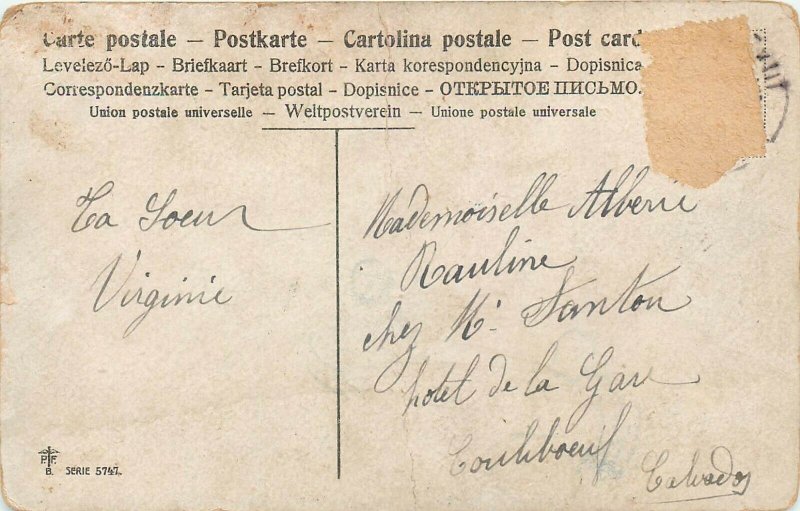 Carte postale — Postkarte — Cartolina postale — Post card
Levelező-Lap - Briefkaart - Brefkort - Karta korespondencyjna - Dopisnica
Correspondenzkarte - Tarjeta postal - Dopisnice - ОТКРЫТОЕ ПИСЬМО.
Union postale universelle — Weltpostverein — Unione postale universale
Ta Soeur
Virginie
Mademoiselle Alberie
Rauline
chez Mr Santon
hotel de la Gare
Couliboeuf
Calvados
P.F.
B. SERIE 5747.